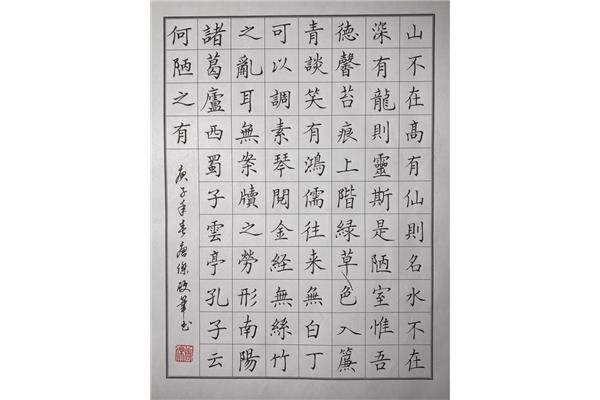 山不在髙有仙則名水不在
深有龍則靈斯是陋室惟吾
德馨苔痕上階緑草色入簾
青談笑有鴻儒往来無白丁
可以調素琴閲金経無絲竹
之亂耳無案牘之勞形南陽
諸葛廬西蜀子雲亭孔子云
何陋之有
庚子年春唐硬筆书